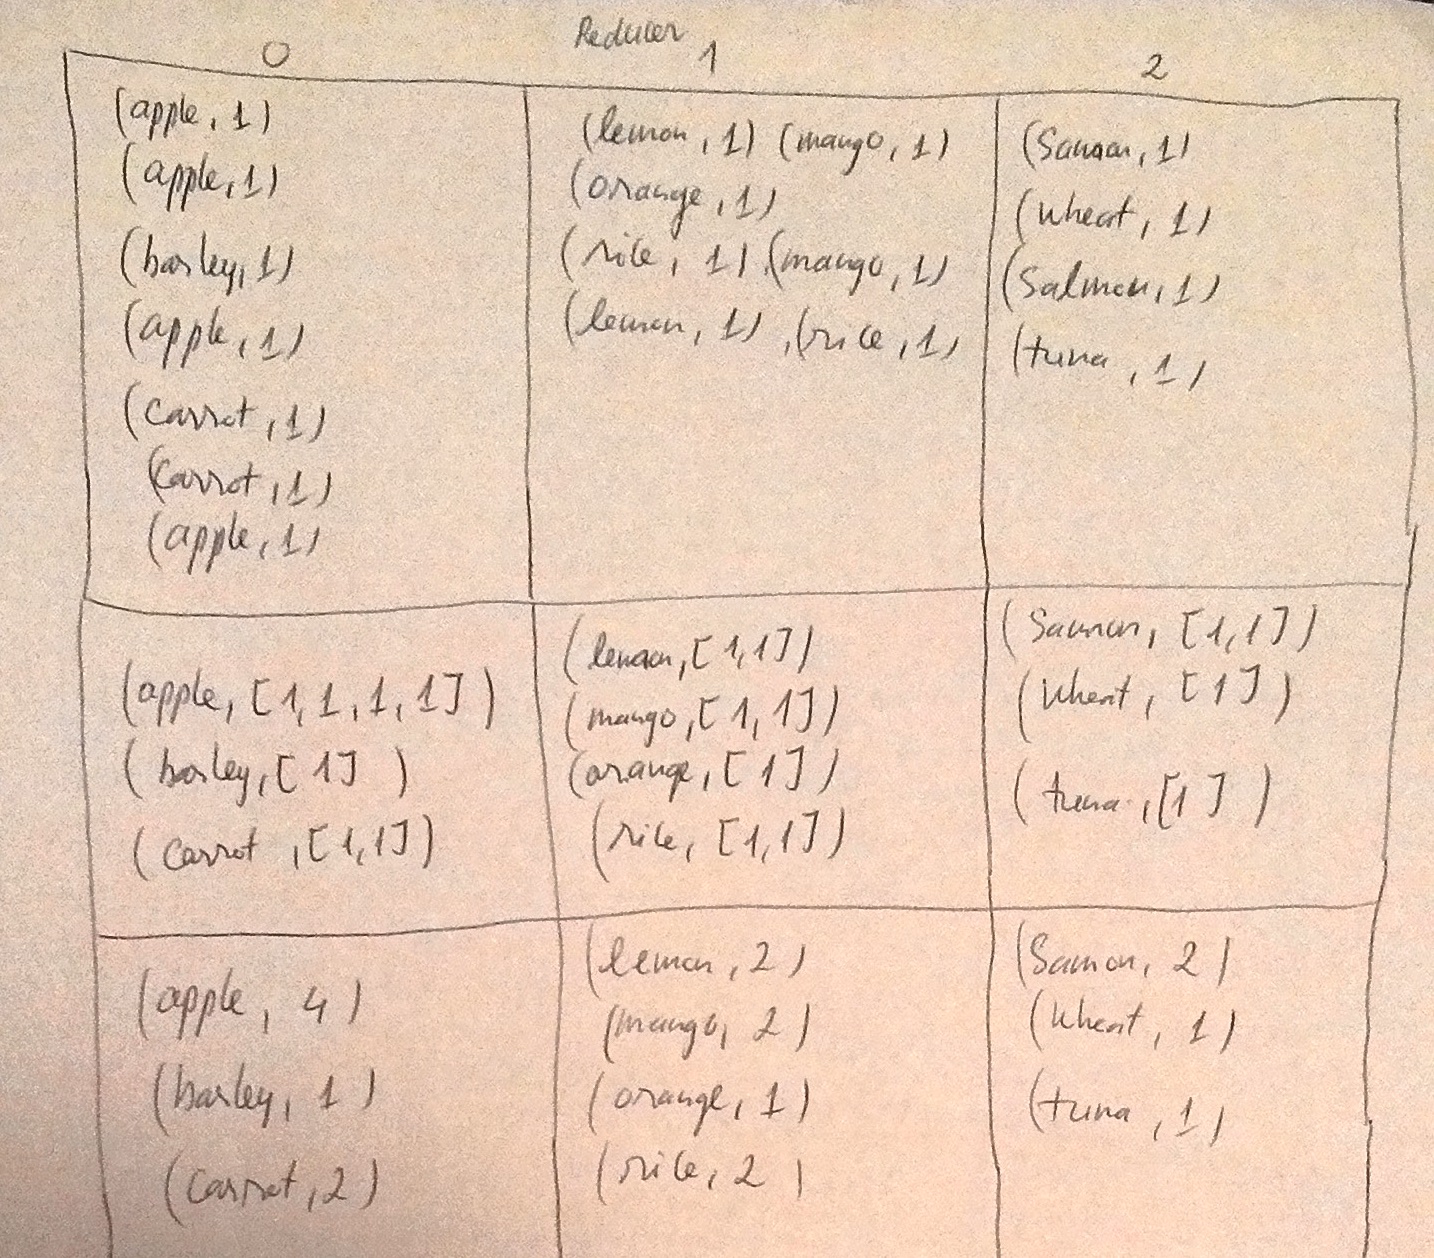 Reducer
0 1 2
(apple, 1)
(apple, 1)
(barley, 1)
(apple, 1)
(carrot, 1)
(carrot, 1)
(apple, 1)
(lemon, 1) (mango, 1)
(orange, 1)
(rice, 1), (mango, 1)
(lemon, 1), (rice, 1)
(Samon, 1)
(wheat, 1)
(Salmon, 1)
(tuna, 1)
(apple, [1,1,1,1])
(barley, [1])
(carrot, [1,1])
(lemon, [1,1])
(mango, [1,1])
(orange, [1])
(rice, [1,1])
(Samon, [1,1])
(wheat, [1])
(tuna, [1])
(apple, 4)
(barley, 1)
(carrot, 2)
(lemon, 2)
(mango, 2)
(orange, 1)
(rice, 2)
(Samon, 2)
(wheat, 1)
(tuna, 1)